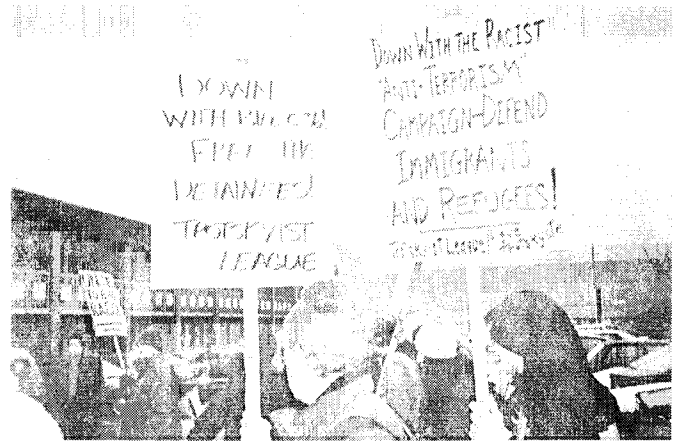 DOWN
WITH
FREE THE
DETAINEES!
TROTSKYIST
LEAGUE
DOWN WITH THE RACIST
"ANTI-TERRORISM"
CAMPAIGN-DEFEND
IMMIGRANTS
AND REFUGEES!